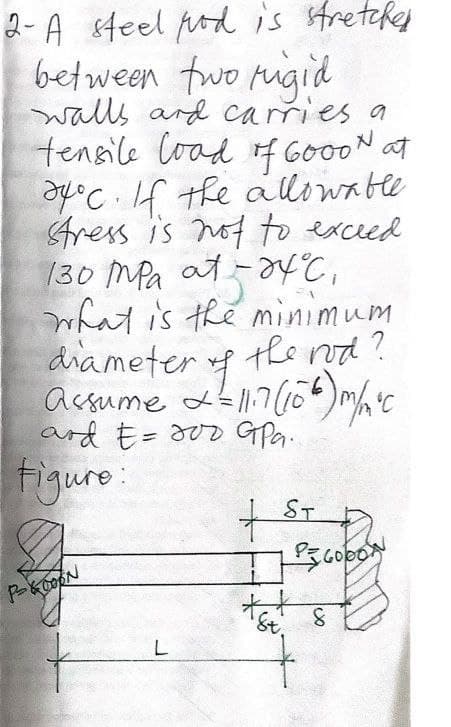 2- A steel rod is stretched
between two rigid
walls and carries a
tensile load of 6000N at
24°C. If the allowable
stress is not to exceed
130 MPa at -24°C,
what is the minimum
diameter of the rod?
Assume α=11.7(10⁻⁶)m/m°C
and E= 200 GPa.
Figure:
δT
P=6000N
P=6000N
δt δ
L